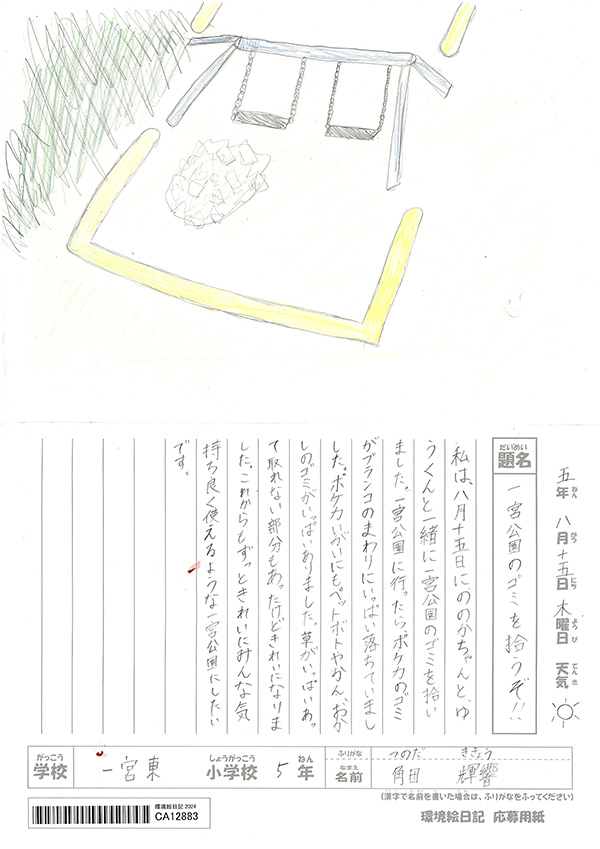 五年 八月十五日 木曜日 天気
ねん がつ にち ようび てんき
だいめい
題名 一宮公園のゴミを拾うぞ!!
私は、八月十五日にののかちゃんと、ゆ
うくんと一緒に一宮公園のゴミを拾い
ました。一宮公園に行ったらポケカのゴミ
がブランコのまわりにいっぱい落ちていまし
した。ポケカいがいにもペットボトやかん、おか
しのゴミがいっぱいありました。草がいっぱいあっ
て取れない部分もあったけどきれいになりま
した。これからもずっときれいにみんな気
持ち良く使えるような一宮公園にしたい
です。
がっこう しょうがっこう ねん ふりがな つのだ ききょう
学校 一宮東 小学校 5年 なまえ 名前 角田 輝響
(漢字で名前を書いた場合は、ふりがなをふってください)
環境絵日記 2024
CA12883
環境絵日記 応募用紙